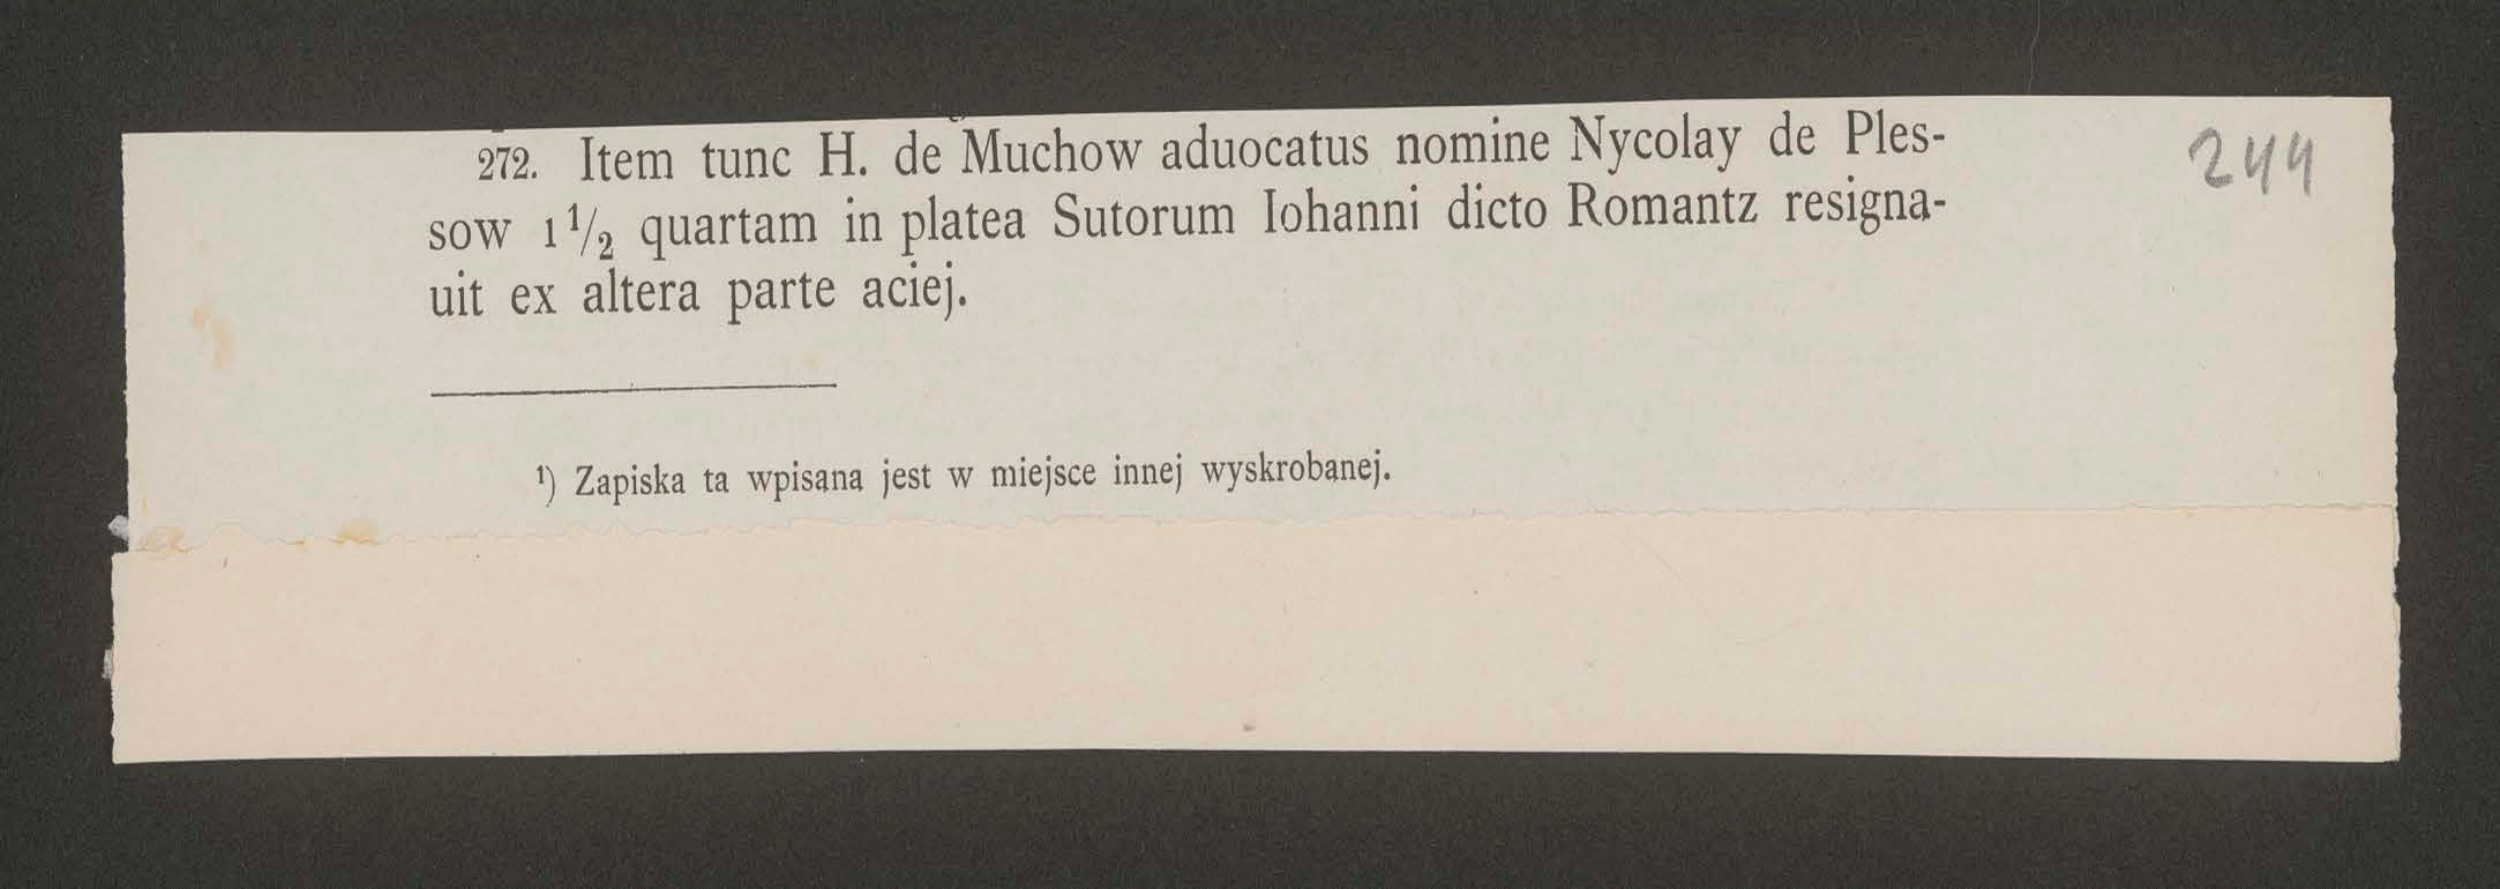 272. Item tunc H. de Muchow aduocatus nomine Nycolay de Ples-
sow 1 1/2 quartam in platea Sutorum Iohanni dicto Romantz resigna-
uit ex altera parte aciej.
¹) Zapiska ta wpisana jest w miejsce innej wyskrobanej.
244